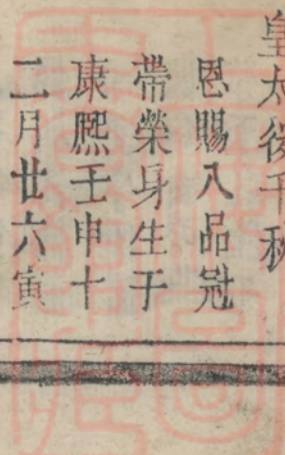 皇太后千秋
恩賜八品冠
帶榮身生于
康熙壬申十
二月廿六寅